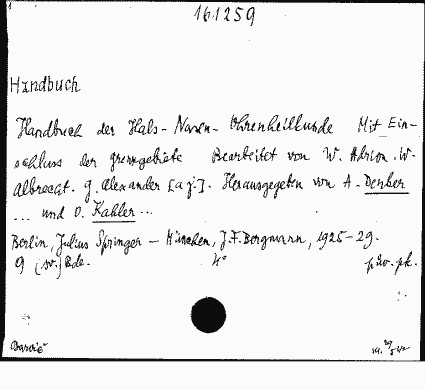 161259
Handbuch
Handbuch der Hals- Nasen- Ohrenheilkunde Mit Ein-
schluss der grenzgebiete Bearbeitet von W. Adrion. W.
Albrecht. G. Alexander [a j.]. Herausgegeben von A. Denker
... und O. Kahler ...
Berlin, Julius Springer – München, J.F. Bergmann, 1925–29.
9 (sv.) Bde. 4°